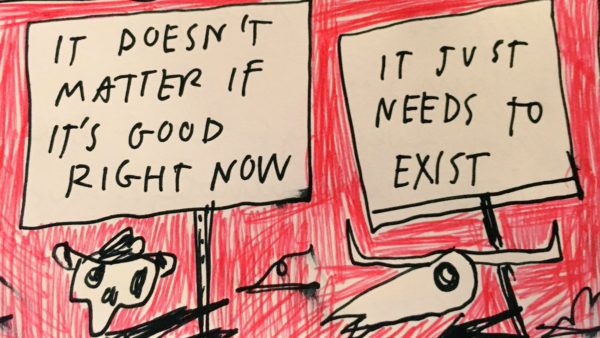 IT DOESN'T
MATTER IF
IT'S GOOD
RIGHT NOW
IT JUST
NEEDS TO
EXIST